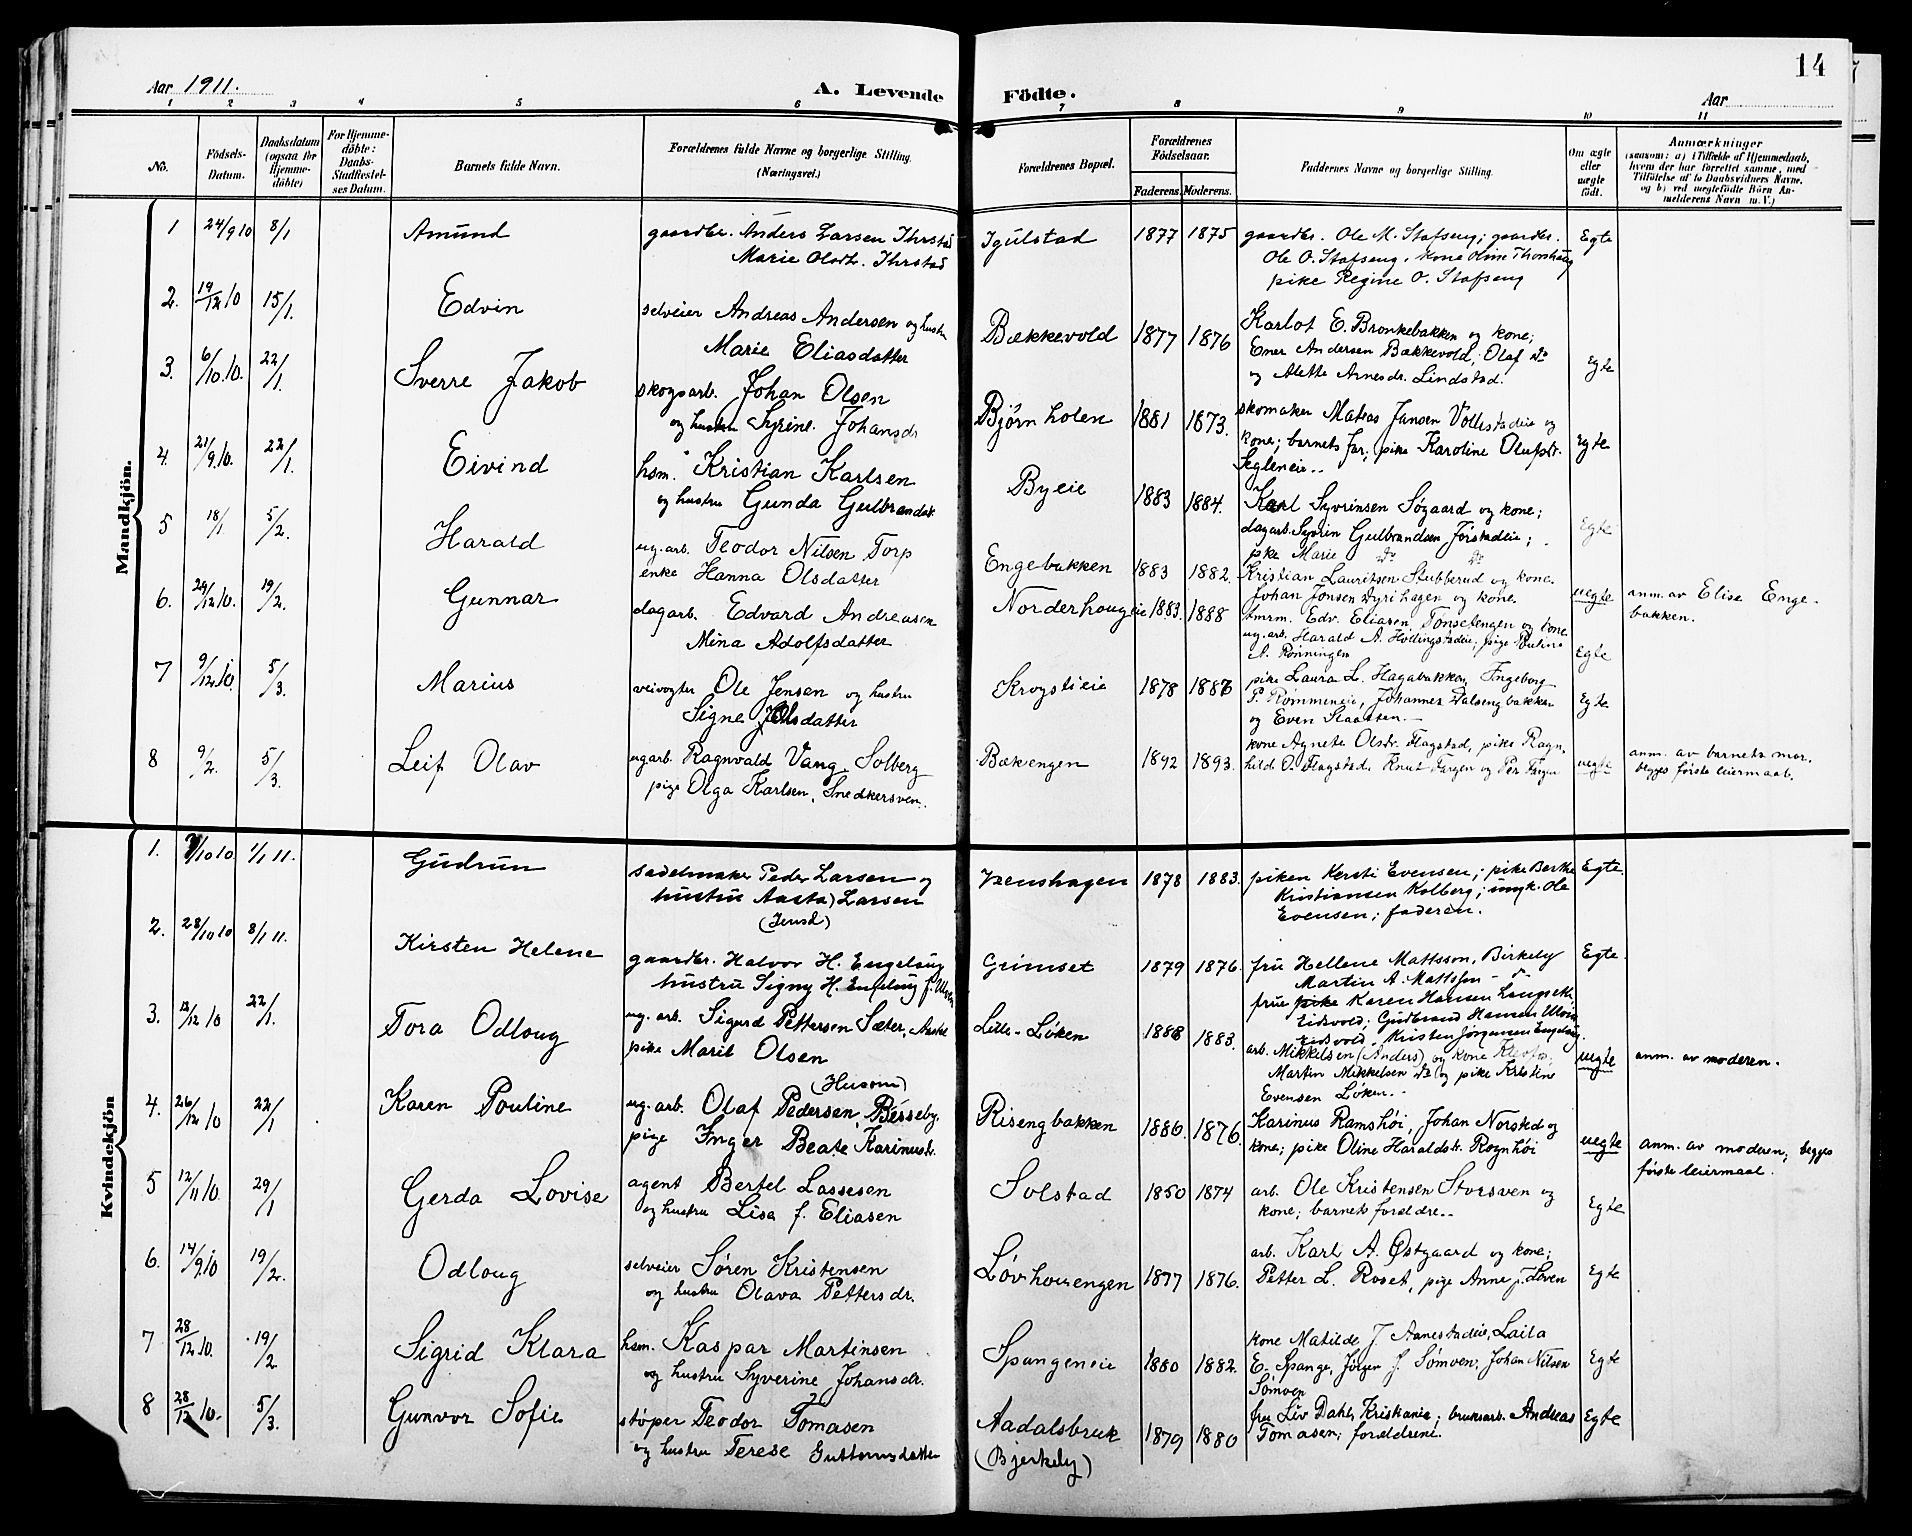 14
Aar 1911.
A. Levende Födte.
Aar
1 2 3 4 5 6 7 8 9 10 11
No.
Födsels-Datum.
Daabsdatum (ogsaa for Hjemme-döbte)
For Hjemme-döbte: Daabs-Stadfæstel-ses Datum.
Barnets fulde Navn.
Forældrenes fulde Navne og borgerlige Stilling. (Næringsvei.)
Forældrenes Bopæl.
Forældrenes Födselsaar.
Faderens. Moderens.
Faddernes Navne og borgerlige Stilling.
Om ægte eller uægte födt.
Anmærkninger
(saasom: a) i Tilfælde af Hjemmedaab, hvem der har forrettet samme, med Tilföielse af to Daabsvidners Navne, og b) ved uægtefödte Börn An-melderens Navn m. V.)
Mandkjön.
1 24/9 10 8/1 Amund gaardbr. Anders Larsen Ihrstad Igulstad 1877 1875 gaardbr. Ole M. Stafseng; gaardbr. Egte
Marie Olsdt. Ihrstad Ole O. Stafseng, kone Oline Thorshaug
pike Regine O. Stafseng
2. 19/12 10 15/1. Edvin selveier Andreas Andersen og hustru Bækkevold 1877 1876 Karlot E. Bronkebakken og kone; Egte
Marie Eliasdatter Emer Andersen Bækkevold, Olaf do
og Alette Arnesdr. Lindstad.
3. 6/10.10. 22/1. Sverre Jakob skogsarb. Johan Olsen Bjørnholen 1881 1873. skomaker Matias Jansen Vollestadeie og Egte
og hustru Syrine Johansdr kone; barnets far; pike Karoline Olufsdr.
Segleneie..
4. 21/9.10. 22/1. Eivind hsm. Kristian Karlsen Byeie 1883 1884. Karl Syvrinsen Søgaard og kone; Egte
og hustru Gunda Gulbrandsdr. dagarb. Syvrin Gulbrandsen Jørstadeie;
pike Marie do do
5 18/1. 5/2. Harald ug.arb. Teodor Nilsen Torp Engebakken 1883 1882. Kristian Lauritsen Stubberud og kone. uegte anm. av Elise Enge-
enke Hanna Olsdatter Johan Jonsen Dyrihagen og kone. bakken.
6. 29/12 10. 19/2. Gunnar dagarb. Edvard Andreasen Norderhougeie 1883. 1888 tmrm. Edv. Eliasen Tonsetengen og kone Egte
Mina Adolfsdatter ug.arb. Harald A. Hollingstadeie; pige
A. Rønningen
7 9/12.10. 5/3. Marius veivogter Ole Jensen og hustru Krogstieie 1878 1886 pike Laura L. Hagabakken, Ingeborg Egte
Signe Olsdatter P. Rømmeneie, Johannes Valsengbakken
og Even Slaatsen.—
8 9/2. 5/3. Leif Olav ugarb. Ragnvald Vang, Solberg Bækengen 1892 1893. kone Agnete Olsdr. Flagstad, pike Ragn- uegte anm. av barnets mor.
pige Olga Karlsen, Snedkersven. hild O. Flagstad, Knut Fargen og Per Fargen begges første leiermaal.
Kvindekjön
1. /10 10. 1/1 11. Gudrun sadelmaker Peder Larsen og Izenshagen 1878 1883. piken Kersti Evensen; pike Berthe Egte.
hustru Aasta Larsen Kristiansen Kolberg; ungk. Ole
(Jensd) Evensen; faderen.
2. 28/10 10 8/1 11. Kirsten Helene gaardbr. Halvor H. Engelaug Grimset 1879 1876. fru Hellene Mattsson, Birkely Egte.
hustru Signy H. Engelaug f. Ulven Martin A. Mattsson —"—
frue pike Karen Hansen Langseth,
Eidsvold; Gudbrand Hansen Ulven
Eidsvold, Kristen Jørgensen Engelaug.
3. 12/12 10 22/1. Tora Odloug ug. arb. Sigurd Pettersen Sæter, Lille-Løken 1888 1883. arb. Mikkelsen (Anders) og kone uegte anm. av moderen.
pike Marit Olsen Martin Mikkelsen do og pike Kristine
Evensen Løken..
4. 26/12 10 22/1 Karen Pouline ug.arb. Olaf Pedersen, Berseby. (Husom) Risengbakken 1886. 1876. Karinus Ramshøi, Johan Norsted og uegte anm. av moderen; begges
pige Inger Beate Karinusdr. kone; pike Oline Haraldsdr. Rognhøi første leiermaal.
5 12/11 10. 29/1 Gerda Lovise agent Bertel Lassesen Solstad 1850 1874 arb. Ole Kristensen Storsven og Egte
og hustru Lisa f. Eliasen kone; barnets forældre..
6. 14/9.10 19/2. Odloug selveier Søren Kristensen Løvhouengen 1877 1876. arb. Karl A. Østgaard og kone; Egte
og hustru Olava Pettersdr. Petter L. Roset, pige Anne J. Løven
7 28/12 10. 19/2 Sigrid Klara hsm. Kaspar Martinsen Spangeneie 1880 1882. kone Matilde J. Aanestadeie, Laila Egte
og hustru Syverine Johansdr. E. Spange, Jörgen J. Sömoen, Johan Nilsen
Sömoen
8 28/12 10. 5/3. Gunvor Sofie støper Teodor Tomasen Aadalsbruk 1879 1880 fru Liv Dahl, Kristiania; bruksarb. Andreas Egte
og hustru Terese Guttormsdatter (Bjerkely) Tomasen; forældrene.